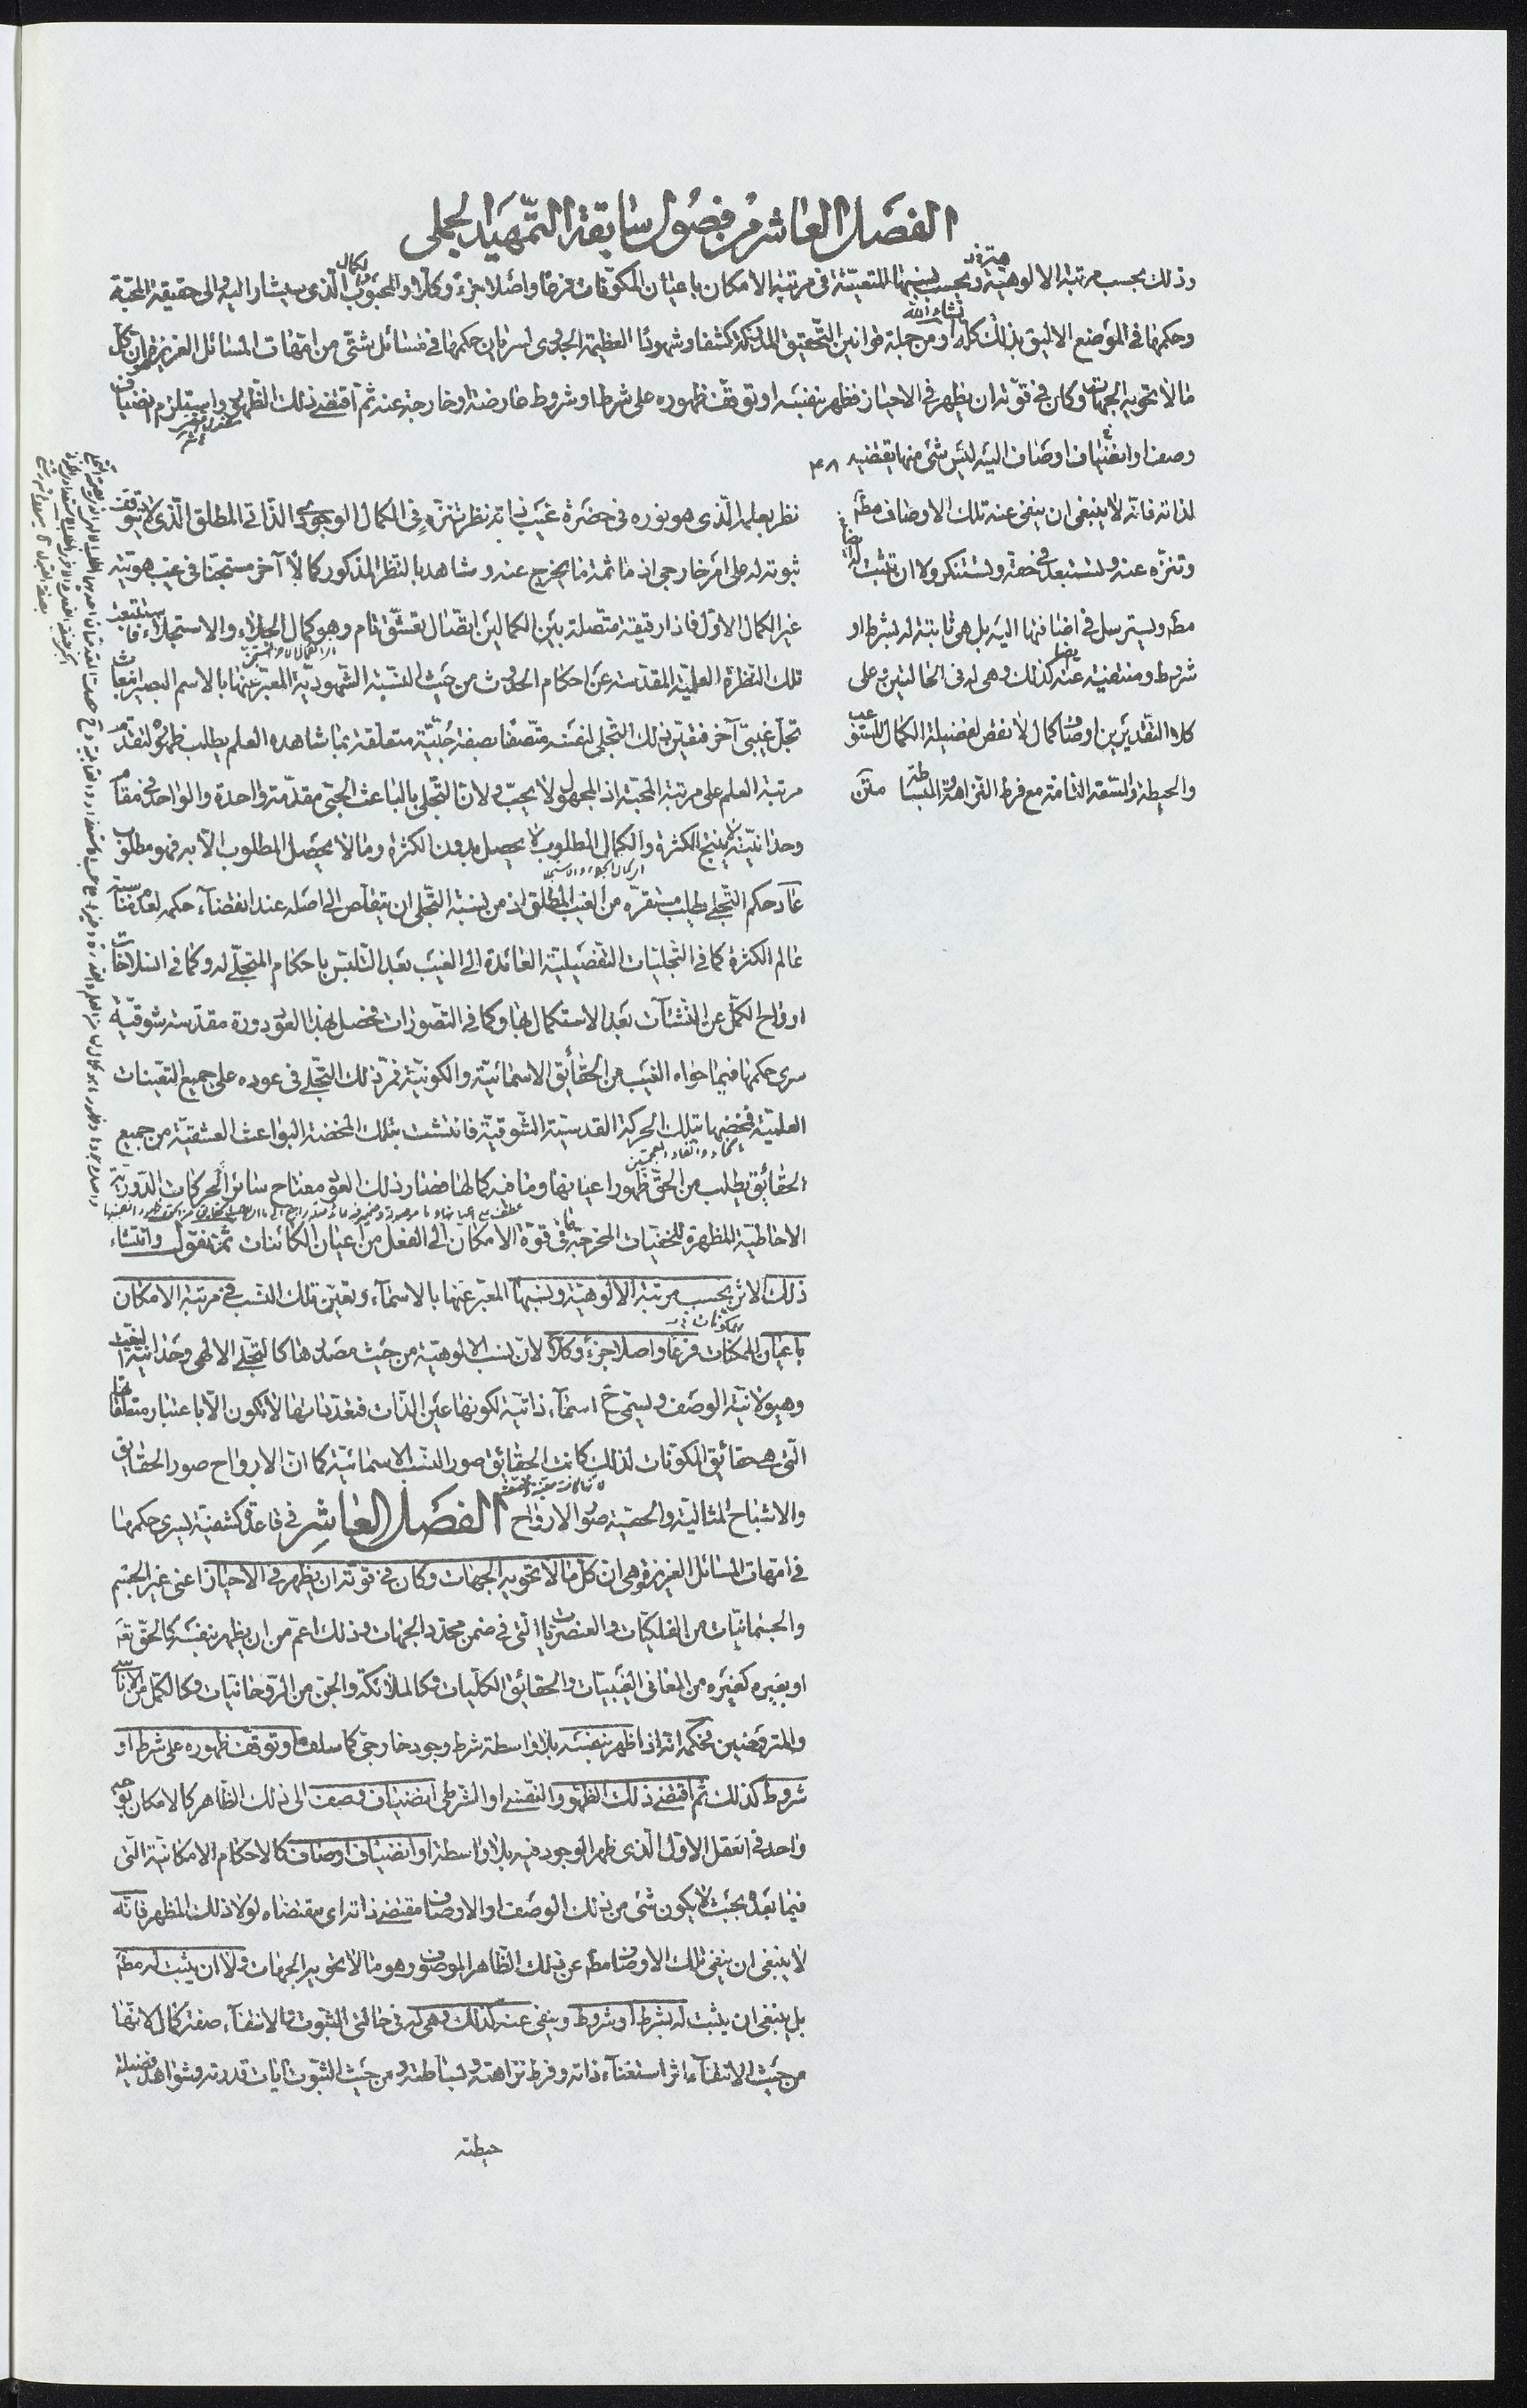 الفصل العاشر من فصول سابقة التمهيد الجملى
وذلك بحسب مرتبة الالوهية وبحسب نسبها المتعينة فى مرتبة الامكان باعيان المكونات فرعا واصلا جزء وكلا والمحبوب الذى سيشار اليه والى حقيقة المحبة
وحكمها فى الموضع الاليق بذلك كله ومن جملة قوانين التحقيق المدركة كشفا وشهودا العظيمة الجدوى لسريان حكمها فى مسائل شتى من امهات المسائل العزيزة هو ان كل
ما لا تحويه الجهات وكان فى قوته ان يظهر فى الاحياز فظهر بنفسه او توقف ظهوره على شرط او شروط عارضة او خارجة عنه ثم اقتضى ذلك الظهور واستلزم انضياف
وصف او انضياف اوصاف اليه ليس شئ منها يقتضيه
لذاته فانه لا ينبغى ان ينفى عنه تلك الاوصاف مط
وتنزه عنه وتستبعد فى حقه وتستنكر ولا ان تثبت له ايضا
مط ويسترسل فى اضافتها اليه بل هو ثابتة له بشرط او
شروط ومنتفية عنه كذلك وهى له فى الحالتين وعلى
كلا التقديرين اوصاف كمال لا نقص لفضيلة الكمال المستوعب
والحيطة والسعة التامة مع فرط النزاهة والبساطة متن
نظر بعلمه الذى هو نوره فى حضرة غيب ذاته نظر تنزه فى الكمال الوجودى الذاتى المطلق الذى لا يتوقف
ثبوته له على امر خارجى اذ ما ثمة ما يخرج عنه وشاهد بالنظر المذكور كمالا آخر مستجنا فى غيب هويته
غير الكمال الاول فاذا رقيقة متصلة بين الكمالين اتصال تعشق تام وهو كمال الجلاء والاستجلاء فاستتبعت
تلك النظرة العلمية المقدسة عن احكام الحدوث من حيث النسبة الشهودية المعبر عنها بالاسم البصير انبعاث
تجل غيبى آخر فتعين ذلك التجلى لنفسه متصفا بصفة حبية متعلقة بما شاهده العلم يطلب ظهوره لتقدم
مرتبة العلم على مرتبة المحبة اذ المجهول لا يحب ولان التجلى بالباعث الحبى مقدمة واحدة والواحد فى مقام
وحدانيته لا ينتج الكثرة والكمال المطلوب لا يحصل بدون الكثرة وما لا يحصل المطلوب الا به فهو مطلوب
عاد حكم التجلى يطلب مستقره من الغيب المطلق اذ من نسبة التجلى ان يتقلص الى اصله عند انقضاء حكمه لعدم مناسبته
عالم الكثرة كما فى التجليات التفصيلية العائدة الى الغيب بعد التلبس باحكام المتجلى له وكما فى انسلاخات
ارواح الكمل عن النشآت بعد الاستكمال بها وكما فى التصورات فحصل بهذا العود دورة مقدسة شوقية
سرى حكمها فيما حواه الغيب من الحقائق الاسمائية والكونية فمر ذلك التجلى فى عوده على جميع التعينات
العلمية فمخضها بتلك الحركة القدسية الشوقية فانتشت بتلك المخضة البواعث العشقية من جميع
الحقائق يطلب من الحق ظهور اعيانها وما فيه كمالها فصار ذلك العود مفتاح سائر الحركات الدورية
الاحاطية المظهرة للخفيات المخرجة ما فى قوة الامكان الى الفعل من اعيان الكائنات ثم نقول وانتشاء
ذلك الاثر بحسب مرتبة الالوهية ونسبها المعبر عنها بالاسماء وتعين تلك النسب فى مرتبة الامكان
باعيان الممكنات فرعا واصلا جزء وكلا لان نسب الالوهية من حيث مصدرها كالتجلى الالهى وحدانية النعت
وهيولانية الوصف ويسمى ح اسماء ذاتية لكونها عين الذات فتعددها لا تكون الا باعتبار متعلقاتها
التى هى حقائق المكونات لذلك كانت الحقائق صور النسب الاسمائية كما ان الارواح صور الحقايق
والاشباح المثالية والحسية صور الارواح الفصل العاشر فى قاعدة كشفية يسرى حكمها
فى امهات المسائل العزيزة وهى ان كل ما لا تحويه الجهات وكان فى قوته ان يظهر فى الاحياز اعنى غير الجسم
والجسمانيات من الفلكيات والعنصريات التى فى ضمن محدد الجهات وذلك اعم من ان يظهر بنفسه كالحق تع
او بغيره كغيره من المعانى الغيبيات والحقائق الكليات وكالملائكة والجن من الروحانيات وكالكمل من الاناسى
والمتروحنين فحكمه انه اذا ظهر بنفسه بلا واسطة شرط وجود خارجى كما سلف او توقف ظهوره على شرط او
شروط كذلك ثم اقتضى ذلك الظهور النفسى او الشرطى انضياف وصف الى ذلك الظاهر كالامكان بوجه
واحد فى العقل الاول الذى ظهر الوجود فيه بلا واسطة او انضياف اوصاف كالاحكام الامكانية التى
فيما بعده بحيث لا يكون شئ من ذلك الوصف او الاوصاف مقتضى ذاته اى مقتضاه لولا ذلك المظهر فانه
لا ينبغى ان ينفى تلك الاوصاف مط عن ذلك الظاهر الموصوف وهو ما لا تحويه الجهات ولا ان يثبت له مط
بل ينبغى ان يثبت له بشرط او شروط وينفى عنه كذلك وهى له فى حالتى الثبوت والانتفاء صفة كمال لانها
من حيث الانتفاء اثر استغناء ذاته وفرط نزاهته وبساطته ومن حيث الثبوت آيات قدرته وشواهد فضيلة
حيطته